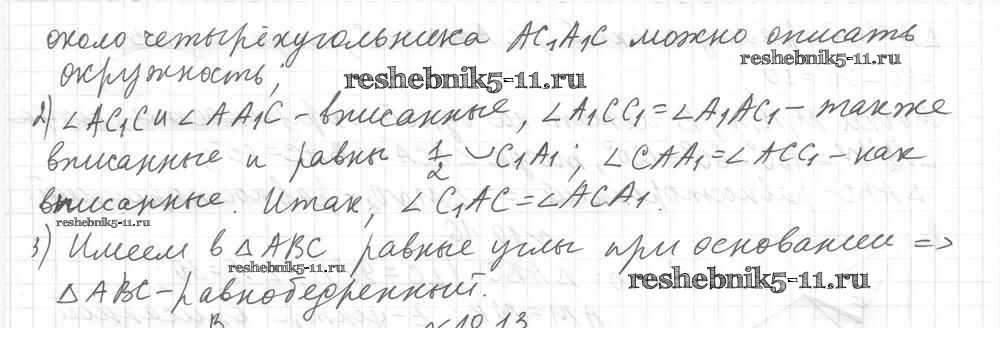 около четырёхугольника AC₁A₁C можно описать
окружность;
reshebnik5-11.ru
reshebnik5-11.ru
2) ∠AC₁C и ∠AA₁C – вписанные, ∠A₁CC₁ = ∠A₁AC₁ – также
вписанные и равны 1/2 ◡C₁A₁; ∠CAA₁ = ∠ACC₁ – как
вписанные. Итак, ∠C₁AC = ∠ACA₁.
reshebnik5-11.ru
3) Имеем в △ABC равные углы при основании =>
reshebnik5-11.ru
reshebnik5-11.ru
△ABC – равнобедренный.
B